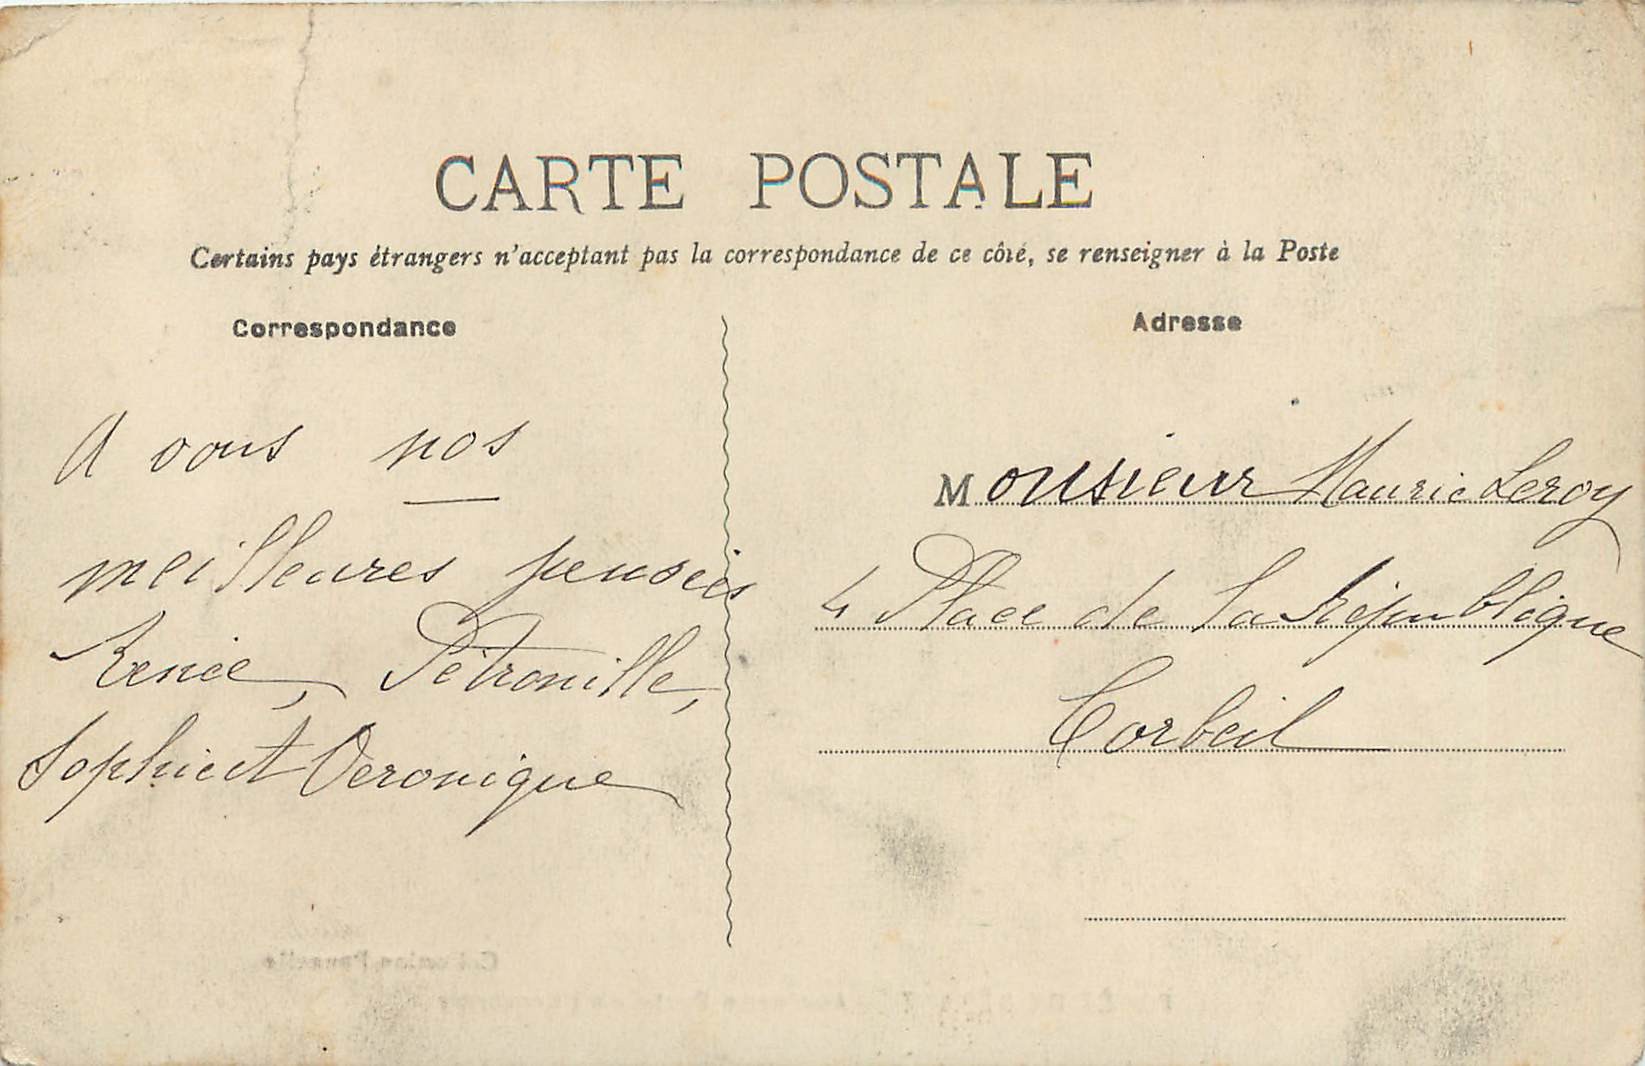 CARTE POSTALE
Certains pays étrangers n'acceptant pas la correspondance de ce côté, se renseigner à la Poste
Correspondance
A vous nos
meilleures pensées
Renée, Pétronille,
Sophie et Veronique
Adresse
Monsieur Mauric Leroy
4 Place de la République
Corbeil